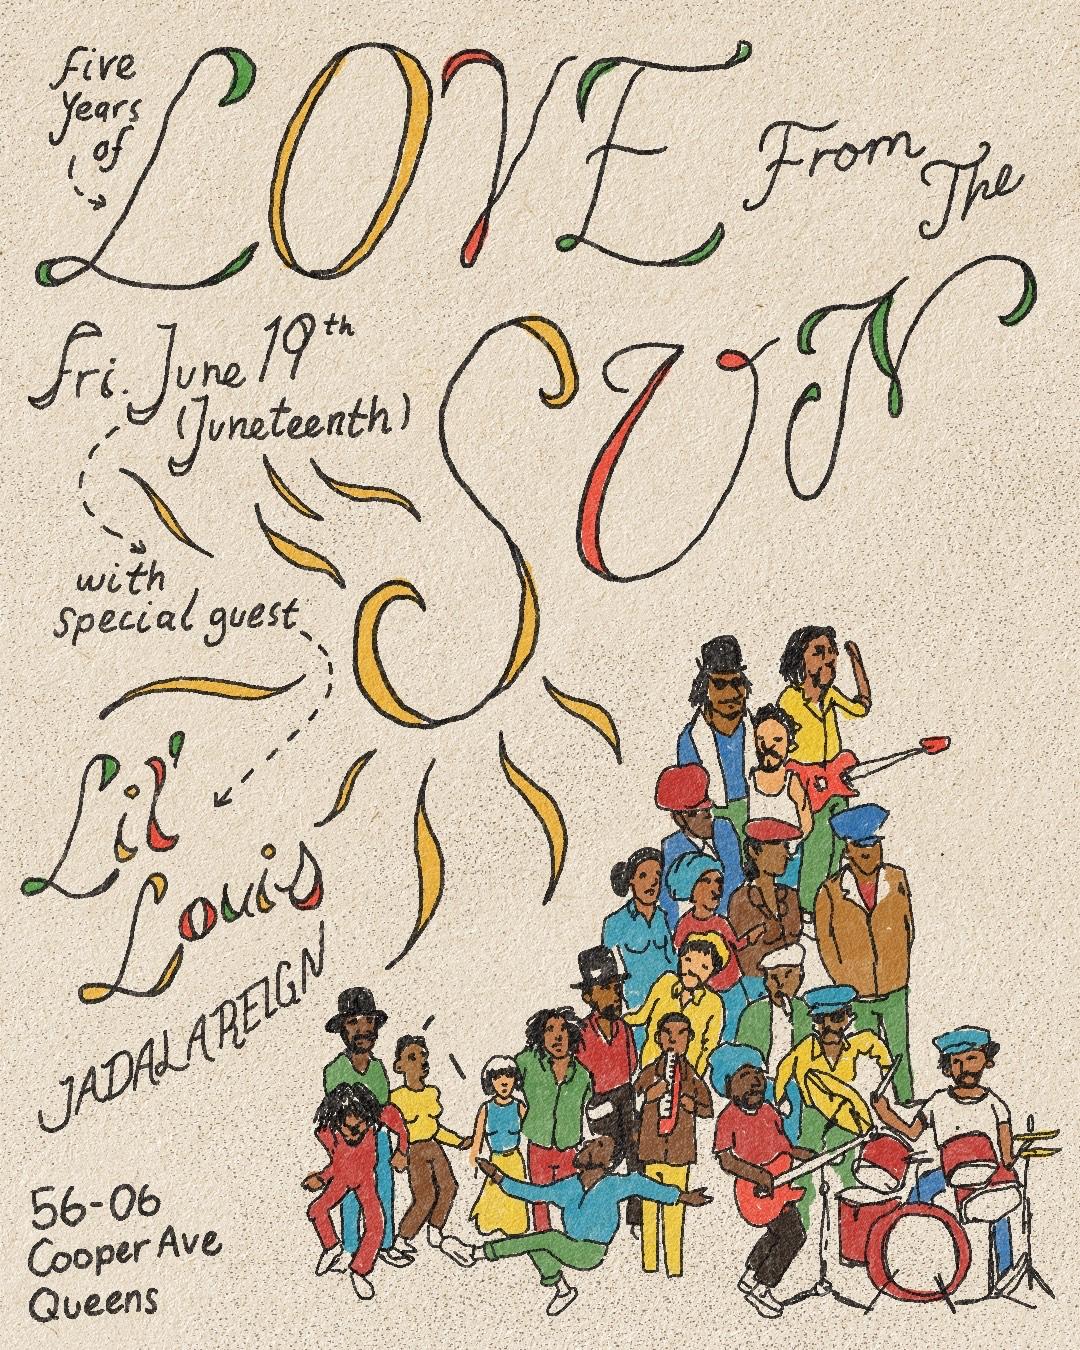 five
years
of
LOVE From
The
SUN
Fri. June 19th
(Juneteenth)
with
special guest
Lil'
Louis
JADALAREIGN
56-06
Cooper Ave
Queens